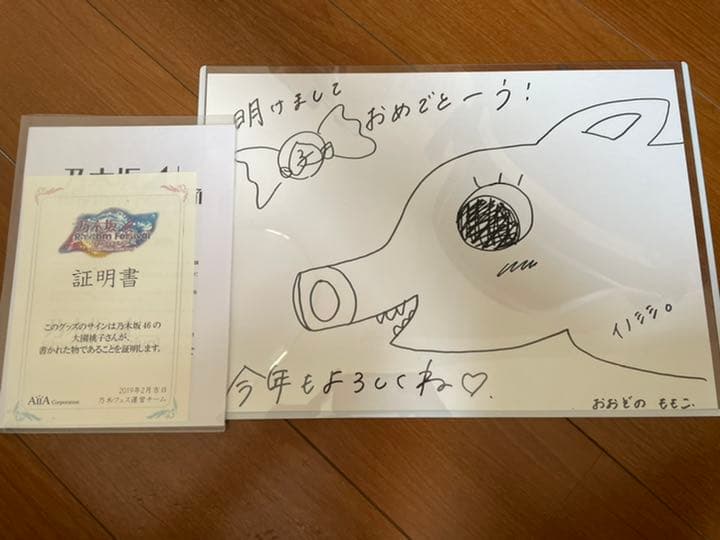 明けまして
おめでとーう!
イノシシ。
今年もよろしくね♡.
おおぞの ももこ.
乃木坂
乃木坂
Rhythm Festival
証明書
このグッズのサインは乃木坂46の
大園桃子さんが、
書かれた物であることを証明します。
2019年2月吉日
AiiA Corporation
乃木フェス運営チーム